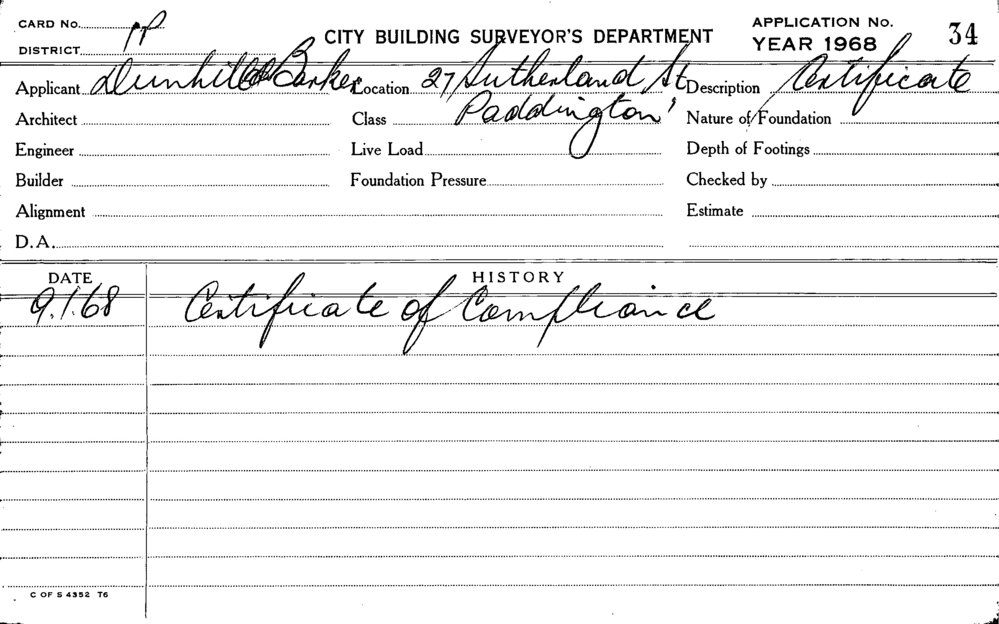 CARD No.
PP
DISTRICT
CITY BUILDING SURVEYOR'S DEPARTMENT
APPLICATION No.
YEAR 1968
34
Applicant Dunhill & Barker Location 27 Sutherland St Description Certificate
Architect Class Paddington Nature of Foundation
Engineer Live Load Depth of Footings
Builder Foundation Pressure Checked by
Alignment Estimate
D.A.
DATE HISTORY
9.1.68 Certificate of Compliance
C OF S 4352 T6